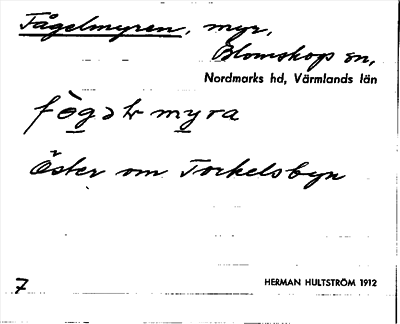 Fågelmyren, myr,
Blomskog sn,
Nordmarks hd, Värmlands län
Öster om Torkelsbyn
7
HERMAN HULTSTRÖM 1912